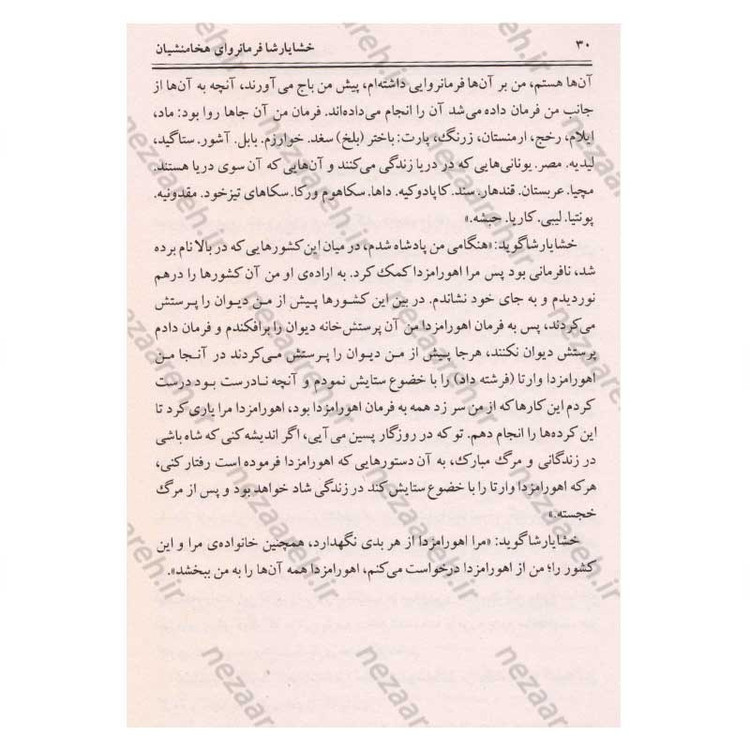 ۳۰
خشایارشا فرمانروای هخامنشیان
آن‌ها هستم، من بر آن‌ها فرمانروایی داشته‌ام، پیش من باج می‌آورند، آنچه به آن‌ها از
جانب من فرمان داده می‌شد آن را انجام می‌داده‌اند. فرمان من آن جاها روا بود: ماد،
ایلام، رخج، ارمنستان، زرنگ، پارت: باختر (بلخ) سغد. خوارزم. بابل. آشور. ستاگید،
لیدیه. مصر. یونانی‌هایی که در دریا زندگی می‌کنند و آن‌هایی که آن سوی دریا هستند.
مچیا. عربستان. قندهار. سند. کاپادوکیه. داها. سکاهوم ورکا. سکاهای تیزخود. مقدونیه.
پونتیا. لیبی. کاریا. حبشه.»
خشایارشا گوید: «هنگامی من پادشاه شدم، در میان این کشورهایی که در بالا نام برده
شد، نافرمانی بود پس مرا اهورامزدا کمک کرد. به اراده‌ی او من آن کشورها را درهم
نوردیدم و به جای خود نشاندم. در بین این کشورها پیش از من دیوان را پرستش
می‌کردند، پس به فرمان اهورامزدا من آن پرستش‌خانه دیوان را برافکندم و فرمان دادم
پرستش دیوان نکنند، هرجا پیش از من دیوان را پرستش می‌کردند در آنجا من
اهورامزدا وارتا (فرشته داد) را با خضوع ستایش نمودم و آنچه نادرست بود درست
کردم این کارها که از من سر زد همه به فرمان اهورامزدا بود، اهورامزدا مرا یاری کرد تا
این کرده‌ها را انجام دهم. تو که در روزگار پسین می‌آیی، اگر اندیشه کنی که شاه باشی
در زندگانی و مرگ مبارک، به آن دستورهایی که اهورامزدا فرموده است رفتار کنی،
هرکه اهورامزدا وارتا را با خضوع ستایش کند در زندگی شاد خواهد بود و پس از مرگ
خجسته.»
خشایارشا گوید: «مرا اهورامزدا از هر بدی نگهدارد، همچنین خانواده‌ی مرا و این
کشور را؛ من از اهورامزدا درخواست می‌کنم، اهورامزدا همه آن‌ها را به من ببخشد».
nezaareh.ir